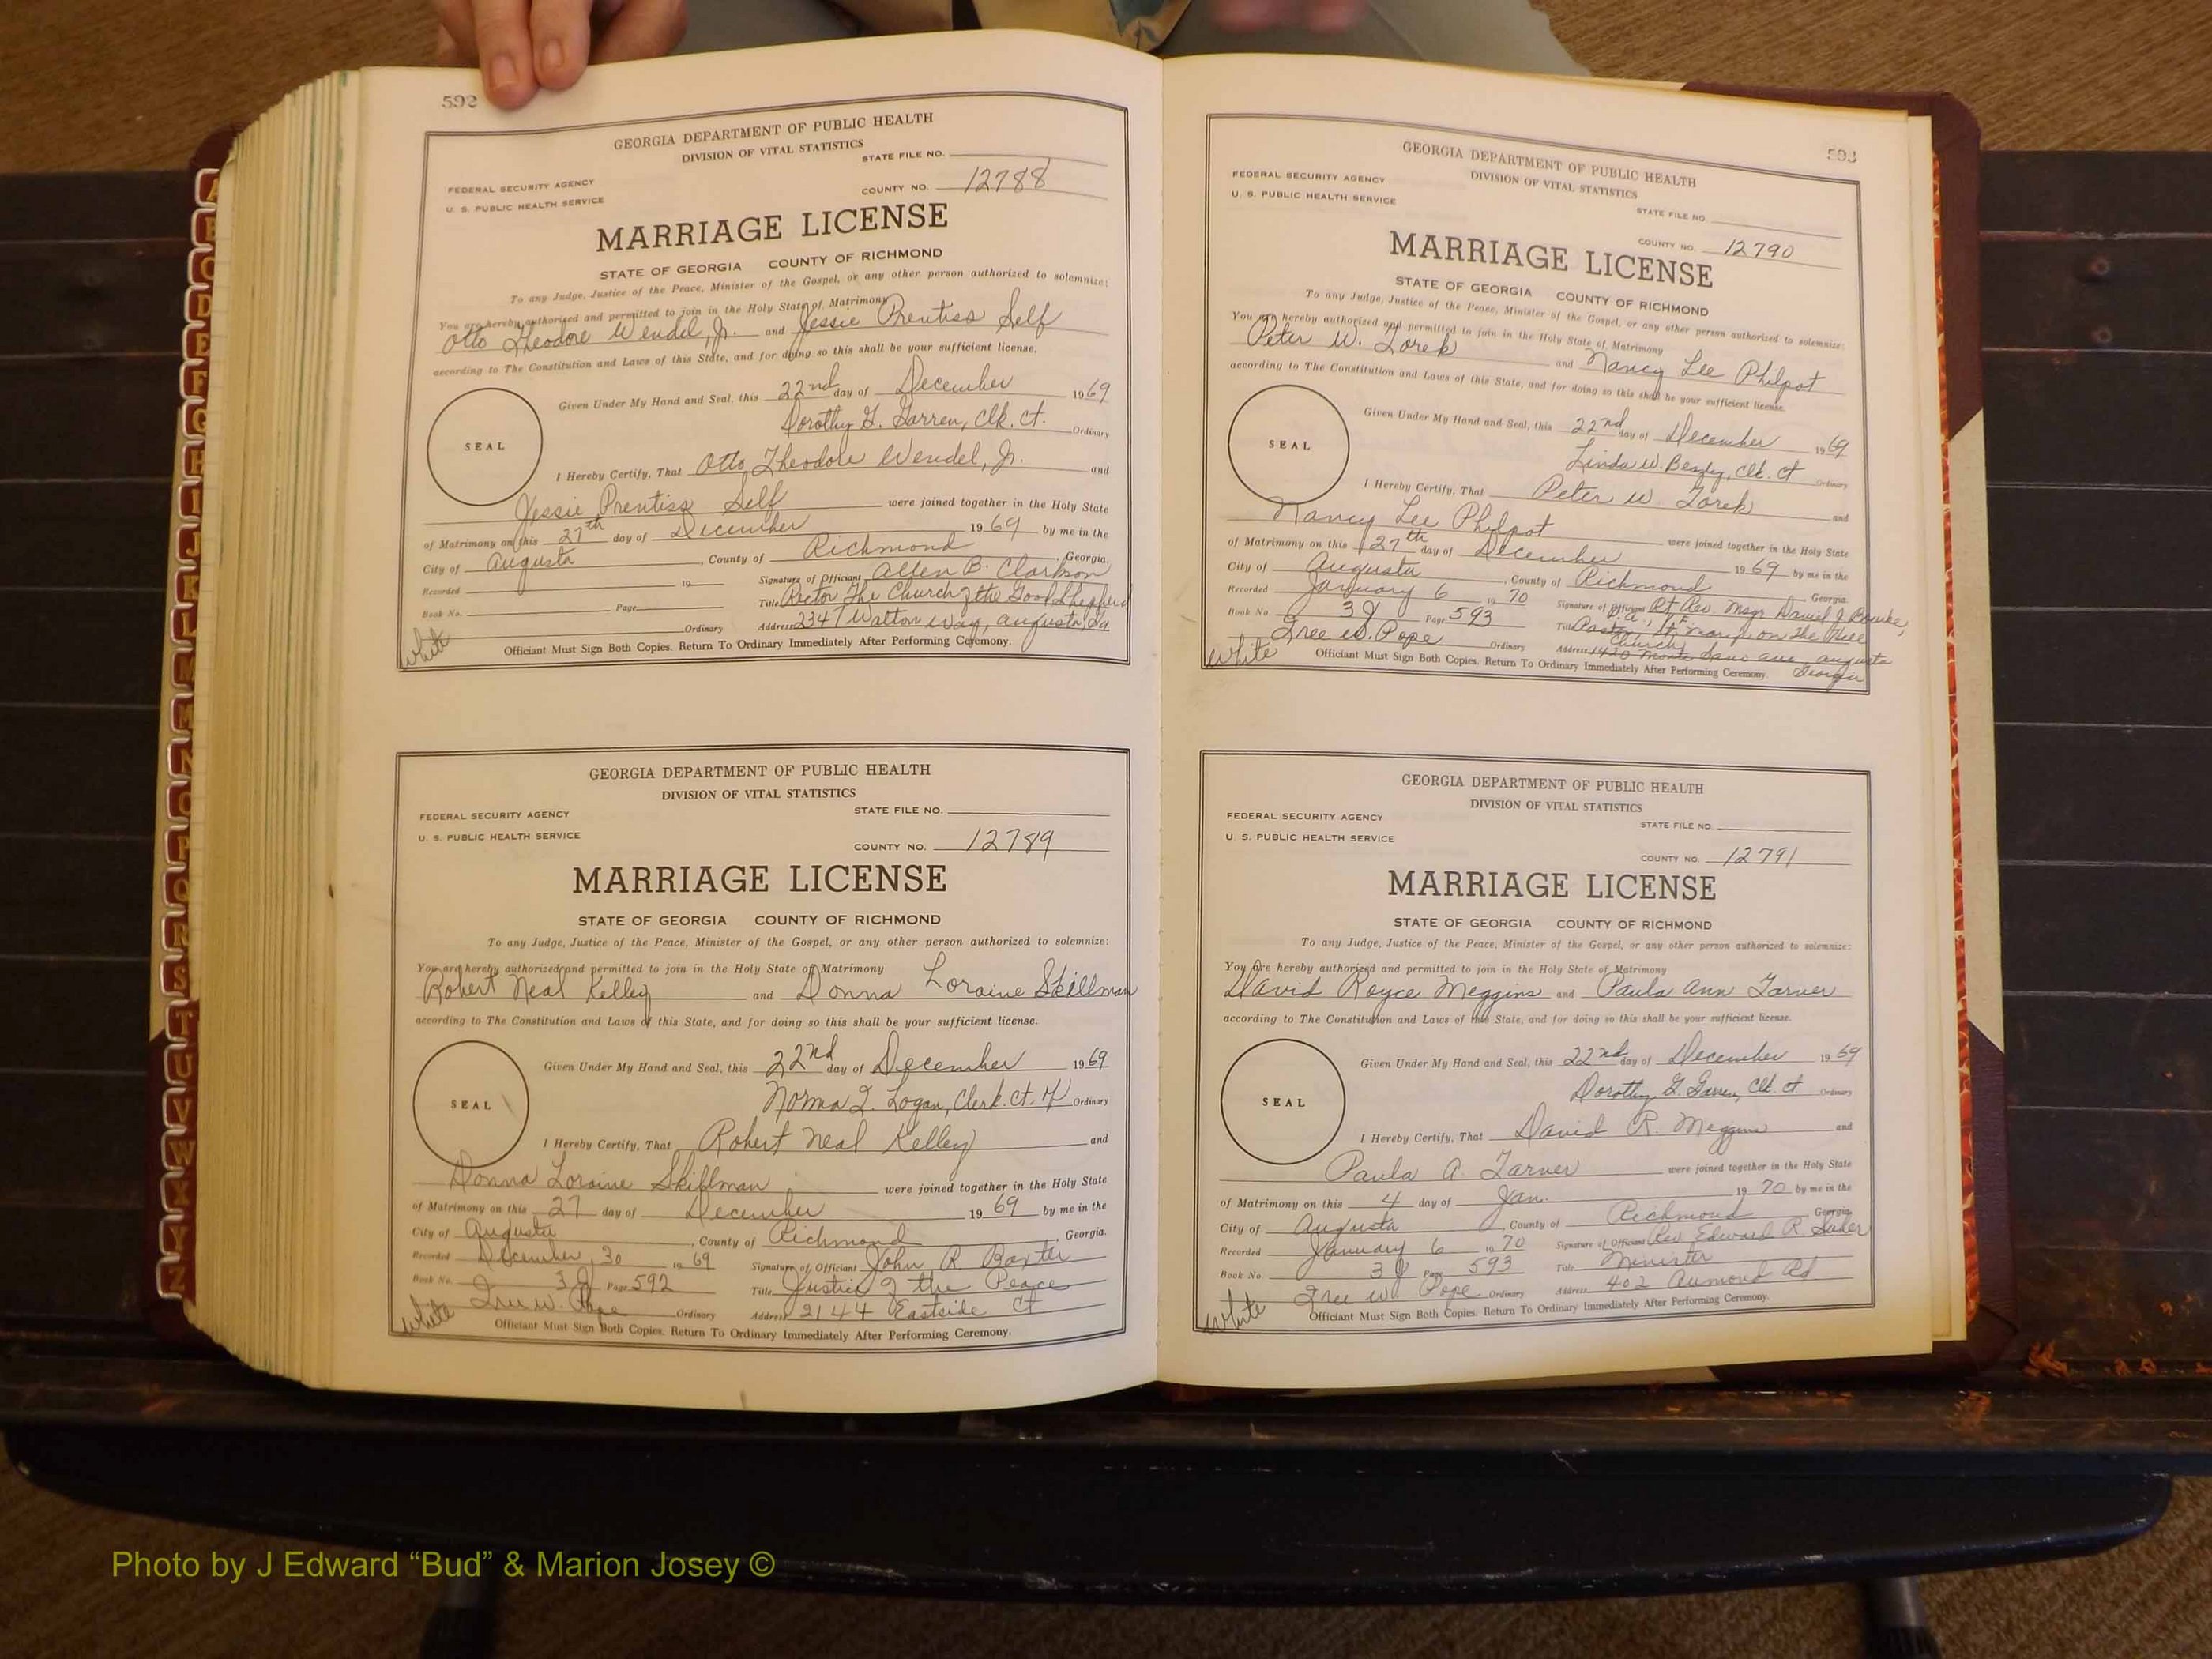 592
GEORGIA DEPARTMENT OF PUBLIC HEALTH
DIVISION OF VITAL STATISTICS
STATE FILE NO.
FEDERAL SECURITY AGENCY
COUNTY NO. 12788
U. S. PUBLIC HEALTH SERVICE
MARRIAGE LICENSE
STATE OF GEORGIA COUNTY OF RICHMOND
To any Judge, Justice of the Peace, Minister of the Gospel, or any other person authorized to solemnize:
You are hereby authorized and permitted to join in the Holy State of Matrimony
Otto Theodore Wendel, Jr. and Jessie Prentiss Self
according to The Constitution and Laws of this State, and for doing so this shall be your sufficient license.
Given Under My Hand and Seal, this 22nd day of December 1969
Dorothy G. Garren, Clk. Ct. Ordinary
SEAL
I Hereby Certify, That Otto Theodore Wendel, Jr. and
Jessie Prentiss Self were joined together in the Holy State
of Matrimony on this 27th day of December 1969 by me in the
City of Augusta, County of Richmond, Georgia.
Recorded 19 Signature of Official Allen B. Clarkson
Book No. Page Title Rector The Church of the Good Shepherd
Ordinary Address 2347 Walton Way, Augusta, Ga
White
Officiant Must Sign Both Copies. Return To Ordinary Immediately After Performing Ceremony.
GEORGIA DEPARTMENT OF PUBLIC HEALTH
DIVISION OF VITAL STATISTICS
FEDERAL SECURITY AGENCY STATE FILE NO.
U. S. PUBLIC HEALTH SERVICE
COUNTY NO. 12789
MARRIAGE LICENSE
STATE OF GEORGIA COUNTY OF RICHMOND
To any Judge, Justice of the Peace, Minister of the Gospel, or any other person authorized to solemnize:
You are hereby authorized and permitted to join in the Holy State of Matrimony
Robert Neal Kelley and Donna Loraine Skillman
according to The Constitution and Laws of this State, and for doing so this shall be your sufficient license.
Given Under My Hand and Seal, this 22nd day of December 1969
Norma L. Logan, Clerk. Ct. of Ordinary
SEAL
I Hereby Certify, That Robert Neal Kelley and
Donna Loraine Skillman were joined together in the Holy State
of Matrimony on this 27 day of December 1969 by me in the
City of Augusta, County of Richmond, Georgia.
Recorded December 30 1969 Signature of Official John R Baxter
Book No. 38 Page 592 Title Justice of the Peace
W. Pope Ordinary Address 2144 Eastside Ct
White
Officiant Must Sign Both Copies. Return To Ordinary Immediately After Performing Ceremony.
593
GEORGIA DEPARTMENT OF PUBLIC HEALTH
DIVISION OF VITAL STATISTICS
FEDERAL SECURITY AGENCY
U. S. PUBLIC HEALTH SERVICE
STATE FILE NO.
COUNTY NO. 12790
MARRIAGE LICENSE
STATE OF GEORGIA COUNTY OF RICHMOND
To any Judge, Justice of the Peace, Minister of the Gospel, or any other person authorized to solemnize:
You are hereby authorized and permitted to join in the Holy State of Matrimony
Peter W. and Nancy Lee Philpot
according to The Constitution and Laws of this State, and for doing so this shall be your sufficient license.
Given Under My Hand and Seal, this 22nd day of December 1969
Linda W. Clk. Ct Ordinary
SEAL
I Hereby Certify, That Peter W. and
Nancy Lee Philpot were joined together in the Holy State
of Matrimony on this 27th day of December 1969 by me in the
City of Augusta, County of Richmond Georgia.
Recorded January 6 1970 Signature of Official Rt. Rev. Msgr Daniel J Bourke,
Book No. 38 Page 593 Title Pastor, St. Mary's on the Hill
W. Pope Ordinary Church
Address 1420 Monte Sano Ave, Augusta
Georgia
White
Officiant Must Sign Both Copies. Return To Ordinary Immediately After Performing Ceremony.
GEORGIA DEPARTMENT OF PUBLIC HEALTH
DIVISION OF VITAL STATISTICS
FEDERAL SECURITY AGENCY
STATE FILE NO.
U. S. PUBLIC HEALTH SERVICE
COUNTY NO. 12791
MARRIAGE LICENSE
STATE OF GEORGIA COUNTY OF RICHMOND
To any Judge, Justice of the Peace, Minister of the Gospel, or any other person authorized to solemnize:
You are hereby authorized and permitted to join in the Holy State of Matrimony
David Royce Meggins and Paula Ann Tarver
according to The Constitution and Laws of this State, and for doing so this shall be your sufficient license.
Given Under My Hand and Seal, this 22nd day of December 1969
Dorothy G. Garren, Clk. Ct Ordinary
SEAL
I Hereby Certify, That David R. Meggins and
Paula A. Tarver were joined together in the Holy State
of Matrimony on this 4 day of Jan. 1970 by me in the
City of Augusta, County of Richmond Georgia.
Recorded January 6 1970 Signature of Official Rev Edward R.
Book No. 38 Page 593 Title Minister
W. Pope Ordinary Address 402 Aumond Rd
White
Officiant Must Sign Both Copies. Return To Ordinary Immediately After Performing Ceremony.
A
B
C
D
E
F
G
H
I
J
K
L
M
M
N
O
P
Q
R
S
T
U
V
W
X
Y
Z
Photo by J Edward “Bud” & Marion Josey ©